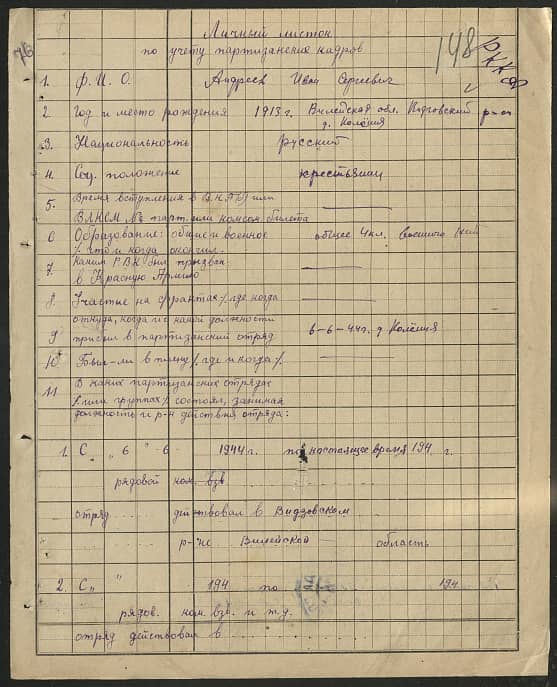 76
Личный листок
по учету партизанских кадров
148
РККА
1. Ф. И. О. Андреев Иван Сергеевич
2 Год и место рождения 1913 г. Вилейская обл. р-он
д. Колёшя
3. Национальность русский
4. Соц. положение крестьянин
5. Время вступления в ВКП(б) или
ВЛКСМ № парт. или комсом. билета
6 Образование: общее и военное общее 4 кл.
что и когда окончил.
7. Каким РВК был призван
в Красную Армию
8. Участие на фронтах, где когда
откуда, когда и с какой должности
9 прибыл в партизанский отряд 6-6-44 г. д Колёшя
10 Был-ли в плену где и когда
11 В каких партизанских отрядах
или группах состоял, занимая
должность и р-н действия отряда:
1. С „6" 6 1944 г. по настоящее время 194 г.
рядовой ком. взв.
отряд действовал в Видзовском
р-не Вилейской область
2. С „ " 194 по 194
рядов. ком. взв. и т.д.
отряд действовал в